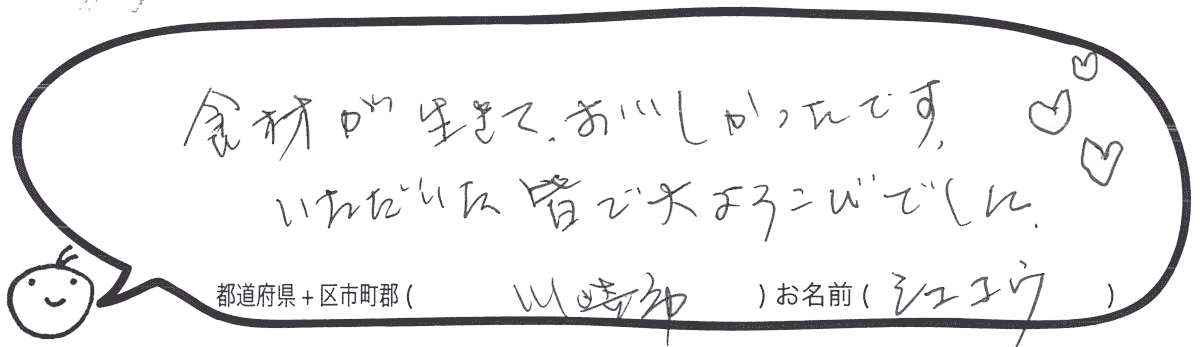 食材が生きて、おいしかったです。
いただいた皆で大よろこびでした。
都道府県+区市町郡(川崎市)お名前(シュユウ)